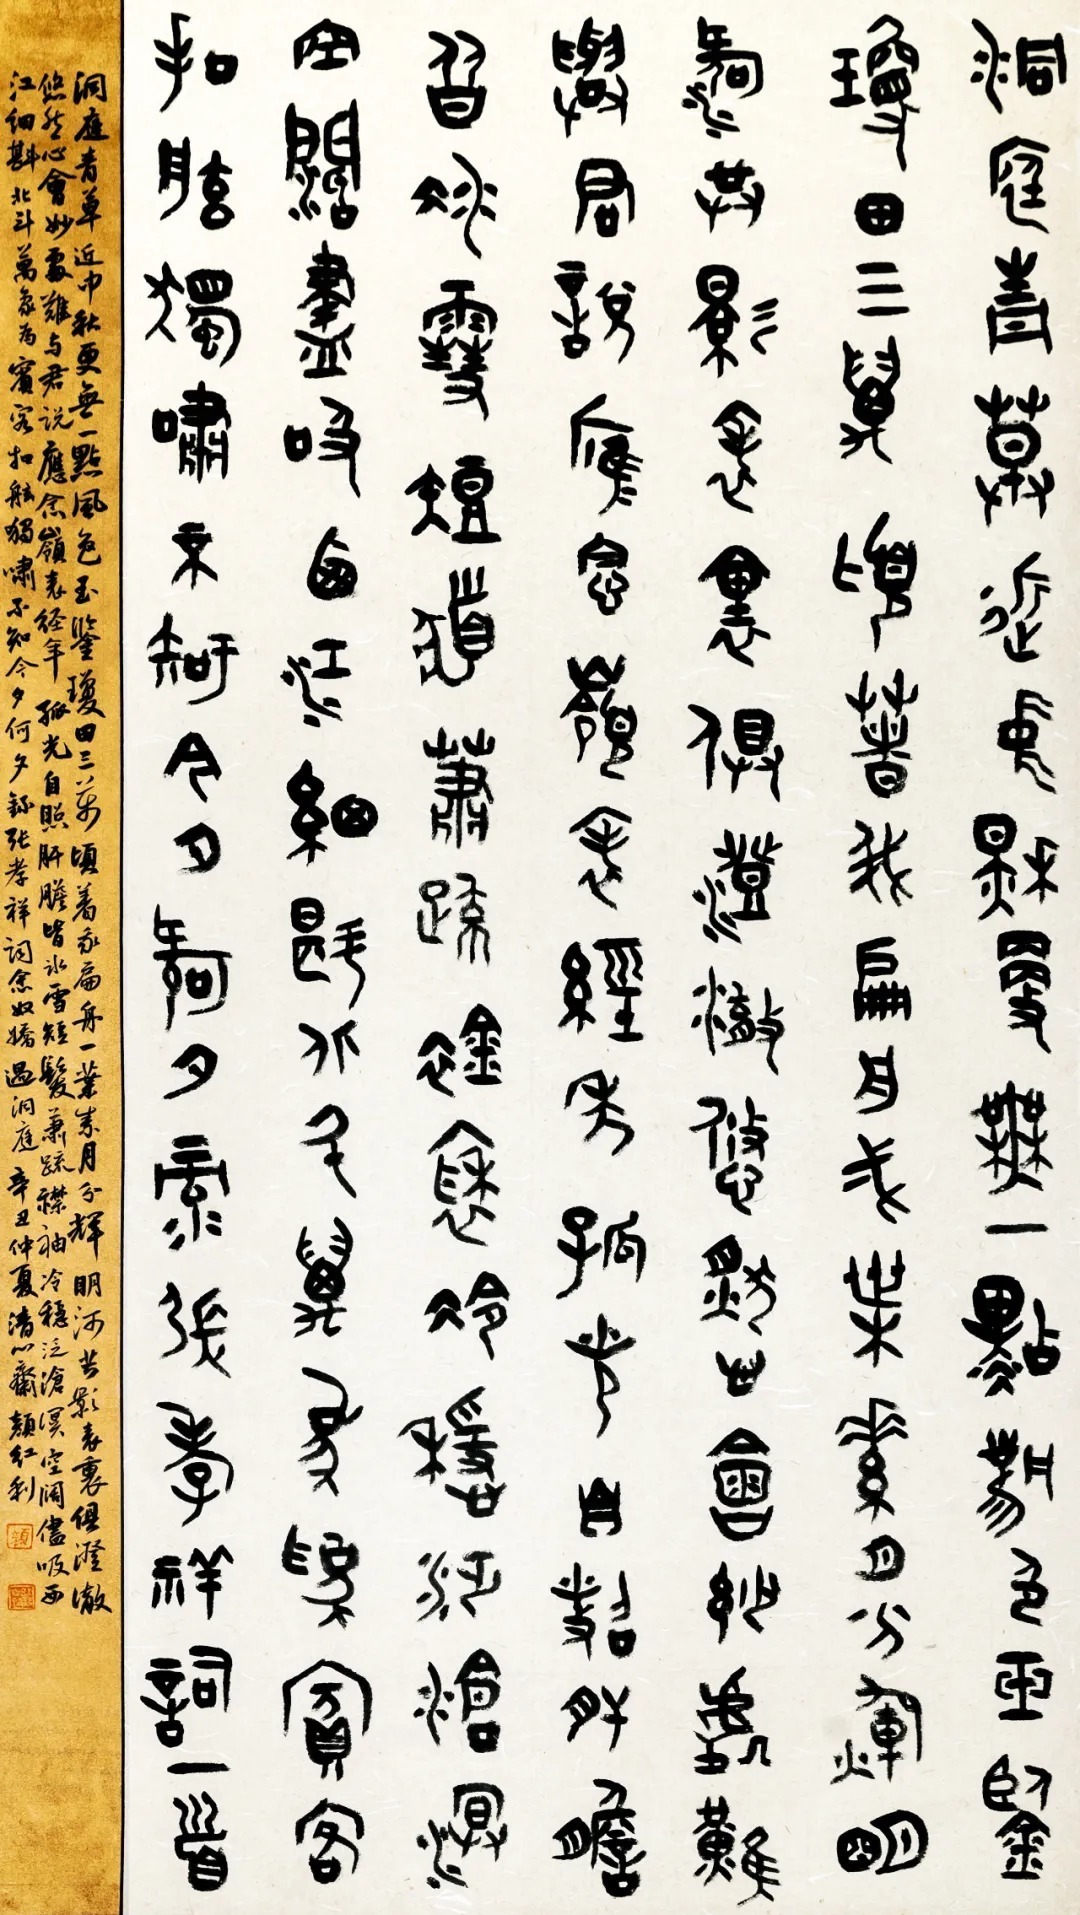 洞庭青草近中秋更無一點風色玉鑒
瓊田三萬頃著我扁舟一葉素月分輝明
河共影表裏俱澄澈悠然心會妙處難
與君說應念嶺表經年孤光自照肝膽
皆冰雪短髮蕭疏襟袖冷穩泛滄溟
空闊盡吸西江細斟北斗萬象為賓客
扣舷獨嘯不知今夕何夕录張孝祥詞一首
洞庭青草近中秋更無一點風色玉鑒瓊田三萬頃着我扁舟一葉素月分輝明河共影表裏俱澄澈
悠然心會妙處難与君说應念嶺表经年孤光自照肝膽皆冰雪短髮蕭疏襟袖冷穩泛滄溟空闊儘吸西
江細斟北斗萬象为賓客扣舷獨嘯不知今夕何夕錄张孝祥词念奴嬌過洞庭辛丑仲夏清心齋顏红利